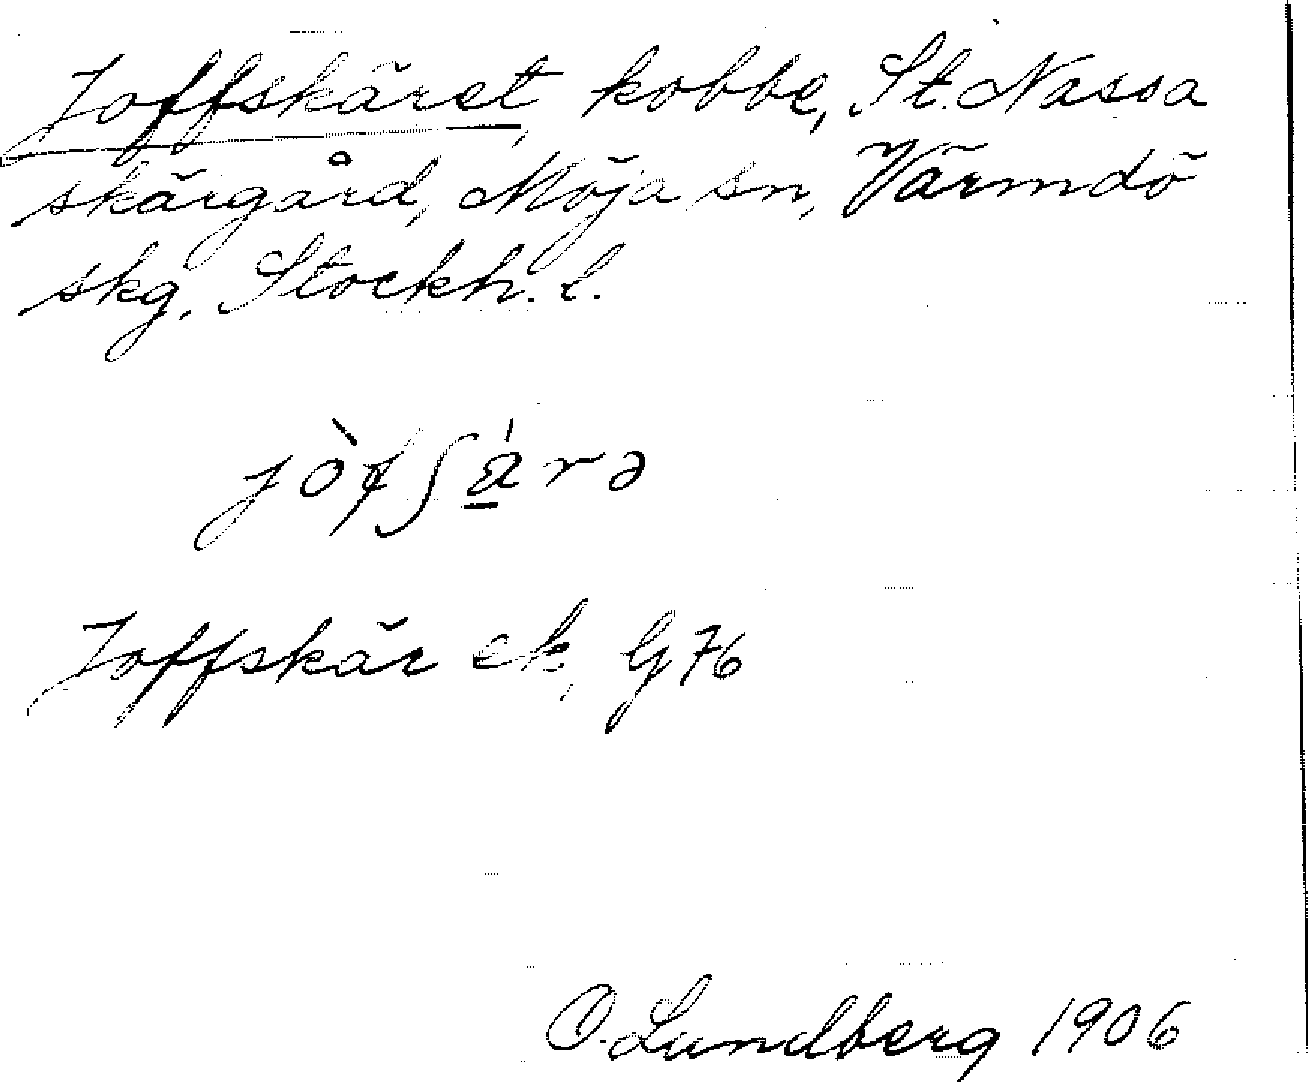 Joffskäret, kobbe, St. Nassa
skärgård, Möja sn, Värmdö
skg. Stockh. l.
Joffskär ek. G 76
O. Lundberg 1906